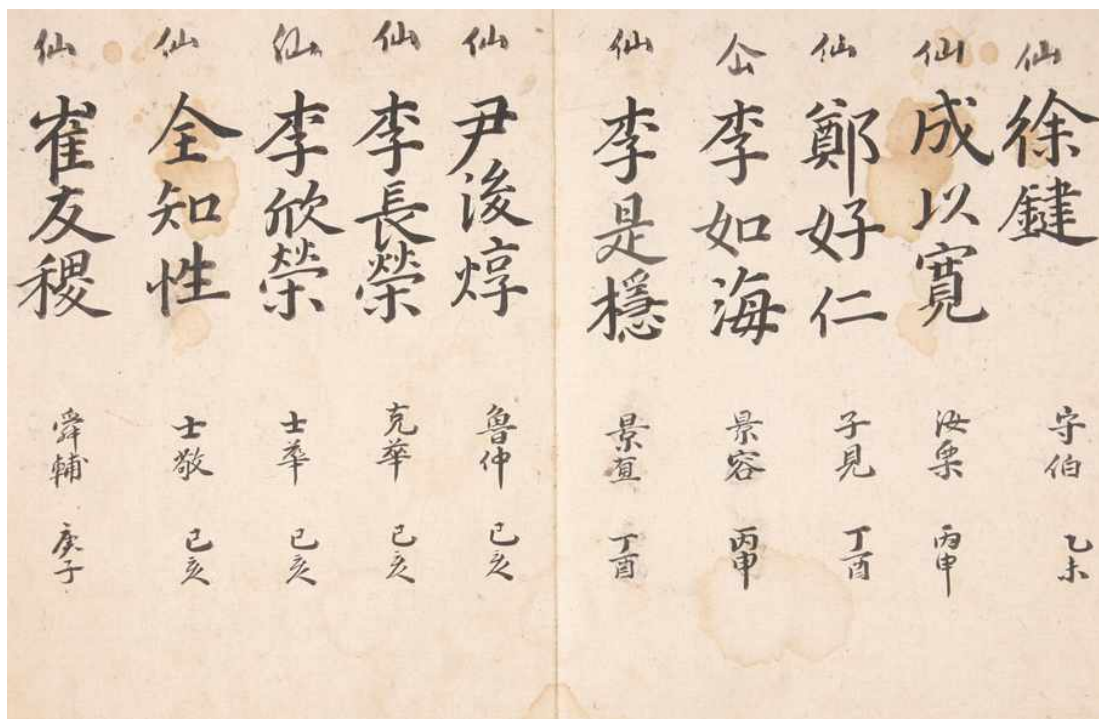 仙 徐鍵 守伯 乙未
仙 成以寬 汝栗 丙申
仙 鄭好仁 子見 丁酉
仚 李如海 景容 丙申
仙 李是穩 景直 丁酉
仙 尹浚焞 魯仲 己亥
仙 李長榮 克華 己亥
仙 李欣榮 士華 己亥
仙 全知性 士敬 己亥
仙 崔友稷 舜輔 庚子